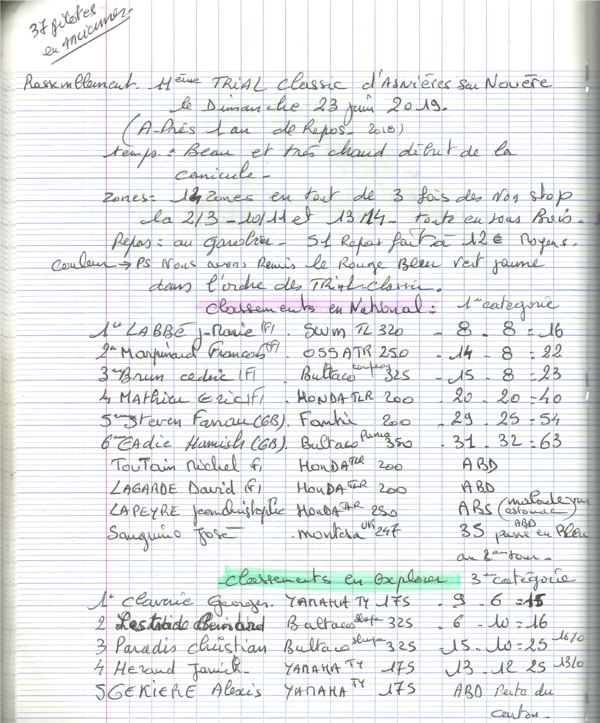 37 pilotes
en anciennes
Rassemblement. 11ème TRIAL Classic d'Asnières sur Nouère
le Dimanche 23 juin 2019.
(A-Près 1 an de Repos- 2018)
temps: Beau et très chaud début de la
canicule-
Zones= 14 zones en tout de 3 fois des Non stop
la 2/3 - 10/11 et 13/14 - toute en sous Bois.
Repas: au - 51 Repas fait à 12€ Moyens.
Couleur → PS Nous avons Remis le Rouge Bleu Vert jaune
dans l'ordre des TRIAL-classic.
Classements en National: 1ère catégorie
1er LABBÉ J-Marie (F). SWM TL 320 - 8 . 8 = 16
2è Marpinaud François (F). OSSA TR 250 - 14 - 8 = 22
3ème Brun cedric (F) Bultaco 325 - 15 . 8 = 23
4 Mathieu Eric (F) HONDA TLR 200 . 20 . 20 = 40
5ème Steven Fanau (GB). Fantic 200 - 29 . 25 = 54
6ème EADie Hamish (GB). Bultaco 350 . 31 . 32 = 63
TouTain Michel (F) HONDA TLR 200 ABD
LAGARDE David (F) HONDA TLR 200 ABD
LAPEYRE Jeanchristophe HONDA TLR 250 ABS (malade
estomac)
Sanguino José - montesa 247 35 ABD passé en Bleu
au 2ème tour-
Classements en Explorer 3ème catégorie
1° Claverie Georges. YAMAHA TY 175 . 9 - 6 = 15
2 Bernard Bultaco sherpa 325 . 6 - 10 = 16
3 Paradis christian Bultaco sherpa 325 . 15 - 10 = 25 16/0
4 Heraud Janick. YAMAHA TY 175 13 - 12 25 13/0
5 GEKIERE Alexis YAMAHA TY 175 ABD Perte du
carton-